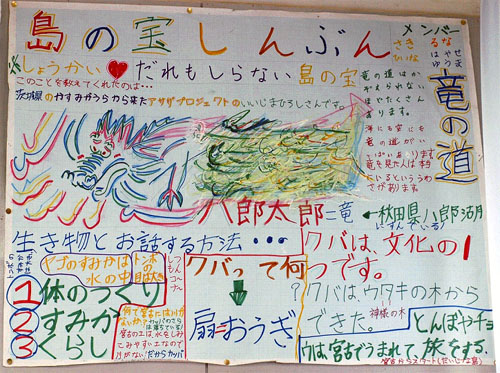 島の宝しんぶん
メンバー
さき るな
ひいな はやと
ゆう せま
しょうかい♥だれもしらない島の宝
このことを教えてくれたのは…
茨城県のやすみがうらから来たアサザプロジェクトのいいじまひろしさんです。
竜の道
竜の道はか
ぞえられない
ほどたくさん
あります。
海にも空にも
竜の道がい
っぱいあります
竜を見た人は本当
にいるといううわ
さがあります。
八郎太郎=竜 ←秋田県八郎湖
(にすんでいる)
生き物とお話する方法…
ヤゴのすみかは
水の中
1 体のつくり
2 すみか
3 くらし
しつもんコーナー
クバって何?
↓
扇=おうぎ
クバは、文化の1
つです。
クバは、ウタキの木から
できた。
神様の木
とんぼやチョ
ウは宮古でうまれて旅をする。